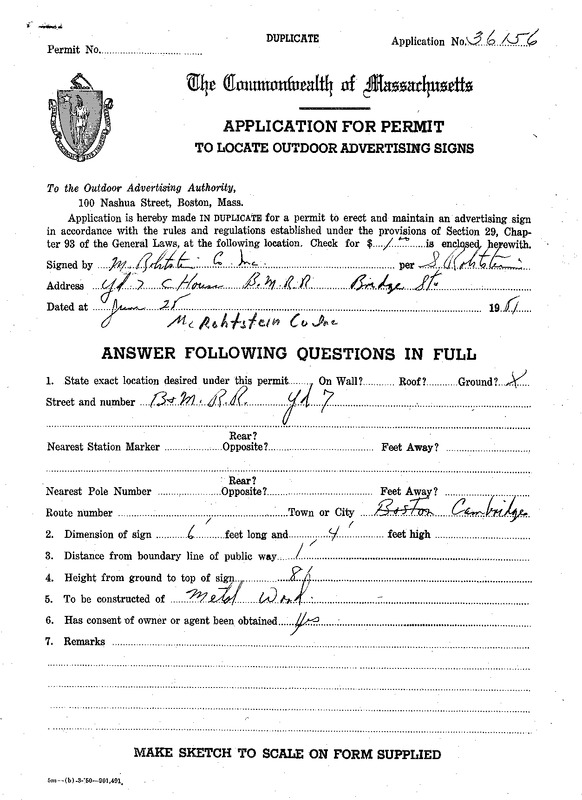 DUPLICATE
Permit No. Application No. 36156
The Commonwealth of Massachusetts
APPLICATION FOR PERMIT
TO LOCATE OUTDOOR ADVERTISING SIGNS
To the Outdoor Advertising Authority,
100 Nashua Street, Boston, Mass.
Application is hereby made IN DUPLICATE for a permit to erect and maintain an advertising sign
in accordance with the rules and regulations established under the provisions of Section 29, Chap-
ter 93 of the General Laws, at the following location. Check for $ 1.00 is enclosed herewith.
Signed by M. Rohtstein Co Inc. per S. Rohtstein
Address Yd 7 C House B.M.R.R Bridge St.
Dated at June 25 1951
M Rohtstein Co Inc
ANSWER FOLLOWING QUESTIONS IN FULL
1. State exact location desired under this permit On Wall? Roof? Ground? X
Street and number B&M. R.R. Yd 7
Rear?
Nearest Station Marker Opposite? Feet Away?
Rear?
Nearest Pole Number Opposite? Feet Away?
Route number Town or City Boston Cambridge
2. Dimension of sign 6' feet long and 4' feet high
3. Distance from boundary line of public way 1'
4. Height from ground to top of sign 8 f
5. To be constructed of Metal Wood.
6. Has consent of owner or agent been obtained Yes
7. Remarks
MAKE SKETCH TO SCALE ON FORM SUPPLIED
5m-(b)-3-'50-901,491